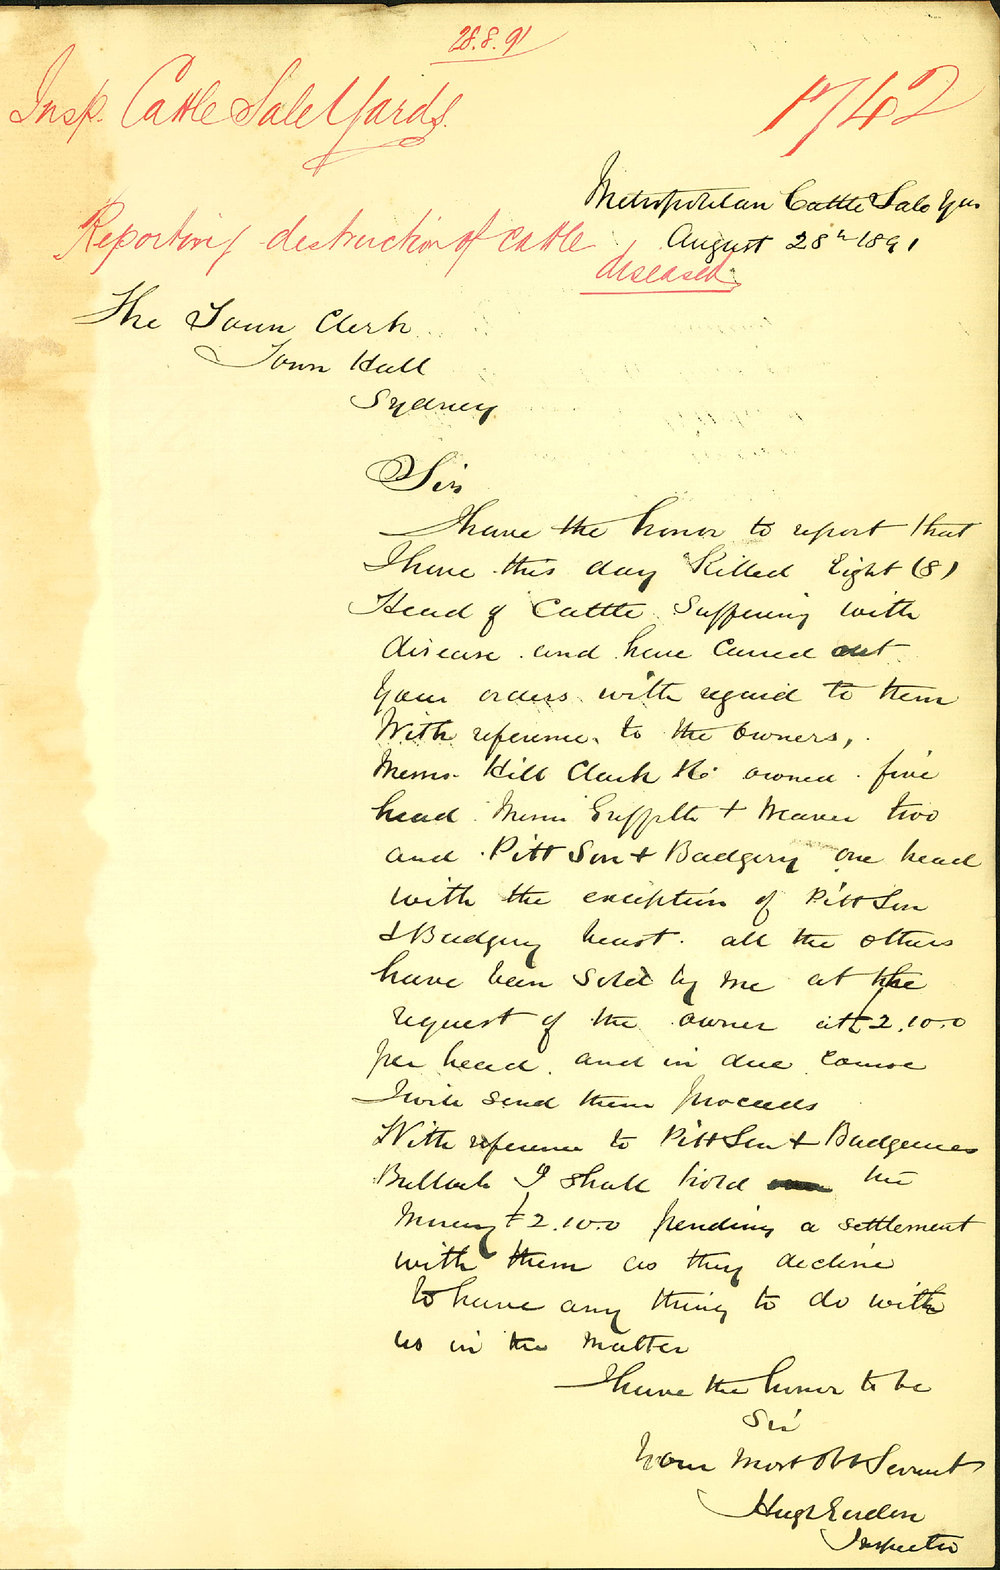 28.8.91
Insp. Cattle Sale Yards.
1742
Metropolitan Cattle Sale Yds
August 28th 1891
Reporting destruction of cattle
diseased.
The Town Clerk
Town Hall
Sydney
Sir
I have the honor to report that
I have this day Killed Eight (8)
Head of Cattle Suffering with
disease and have carried out
Your orders with regard to them
With reference to the Owners,
Messrs Hill Clark & Co owned five
head Messrs Griffith + Weaver two
and Pitt Son + Badgery one head
with the exception of Pitt Son
& Badgery beast. all the others
have been Sold by me at the
request of the owner at £2.10.0
per head. and in due course
I will send them proceeds
With reference to Pitt Son + Badgeries
Bullock I shall hold the
Money £2.10.0 pending a settlement
with them as they decline
to have any thing to do with
us in the Matter
I have the honor to be
Sir
Your Most Obt Servant
Hugh
Inspector